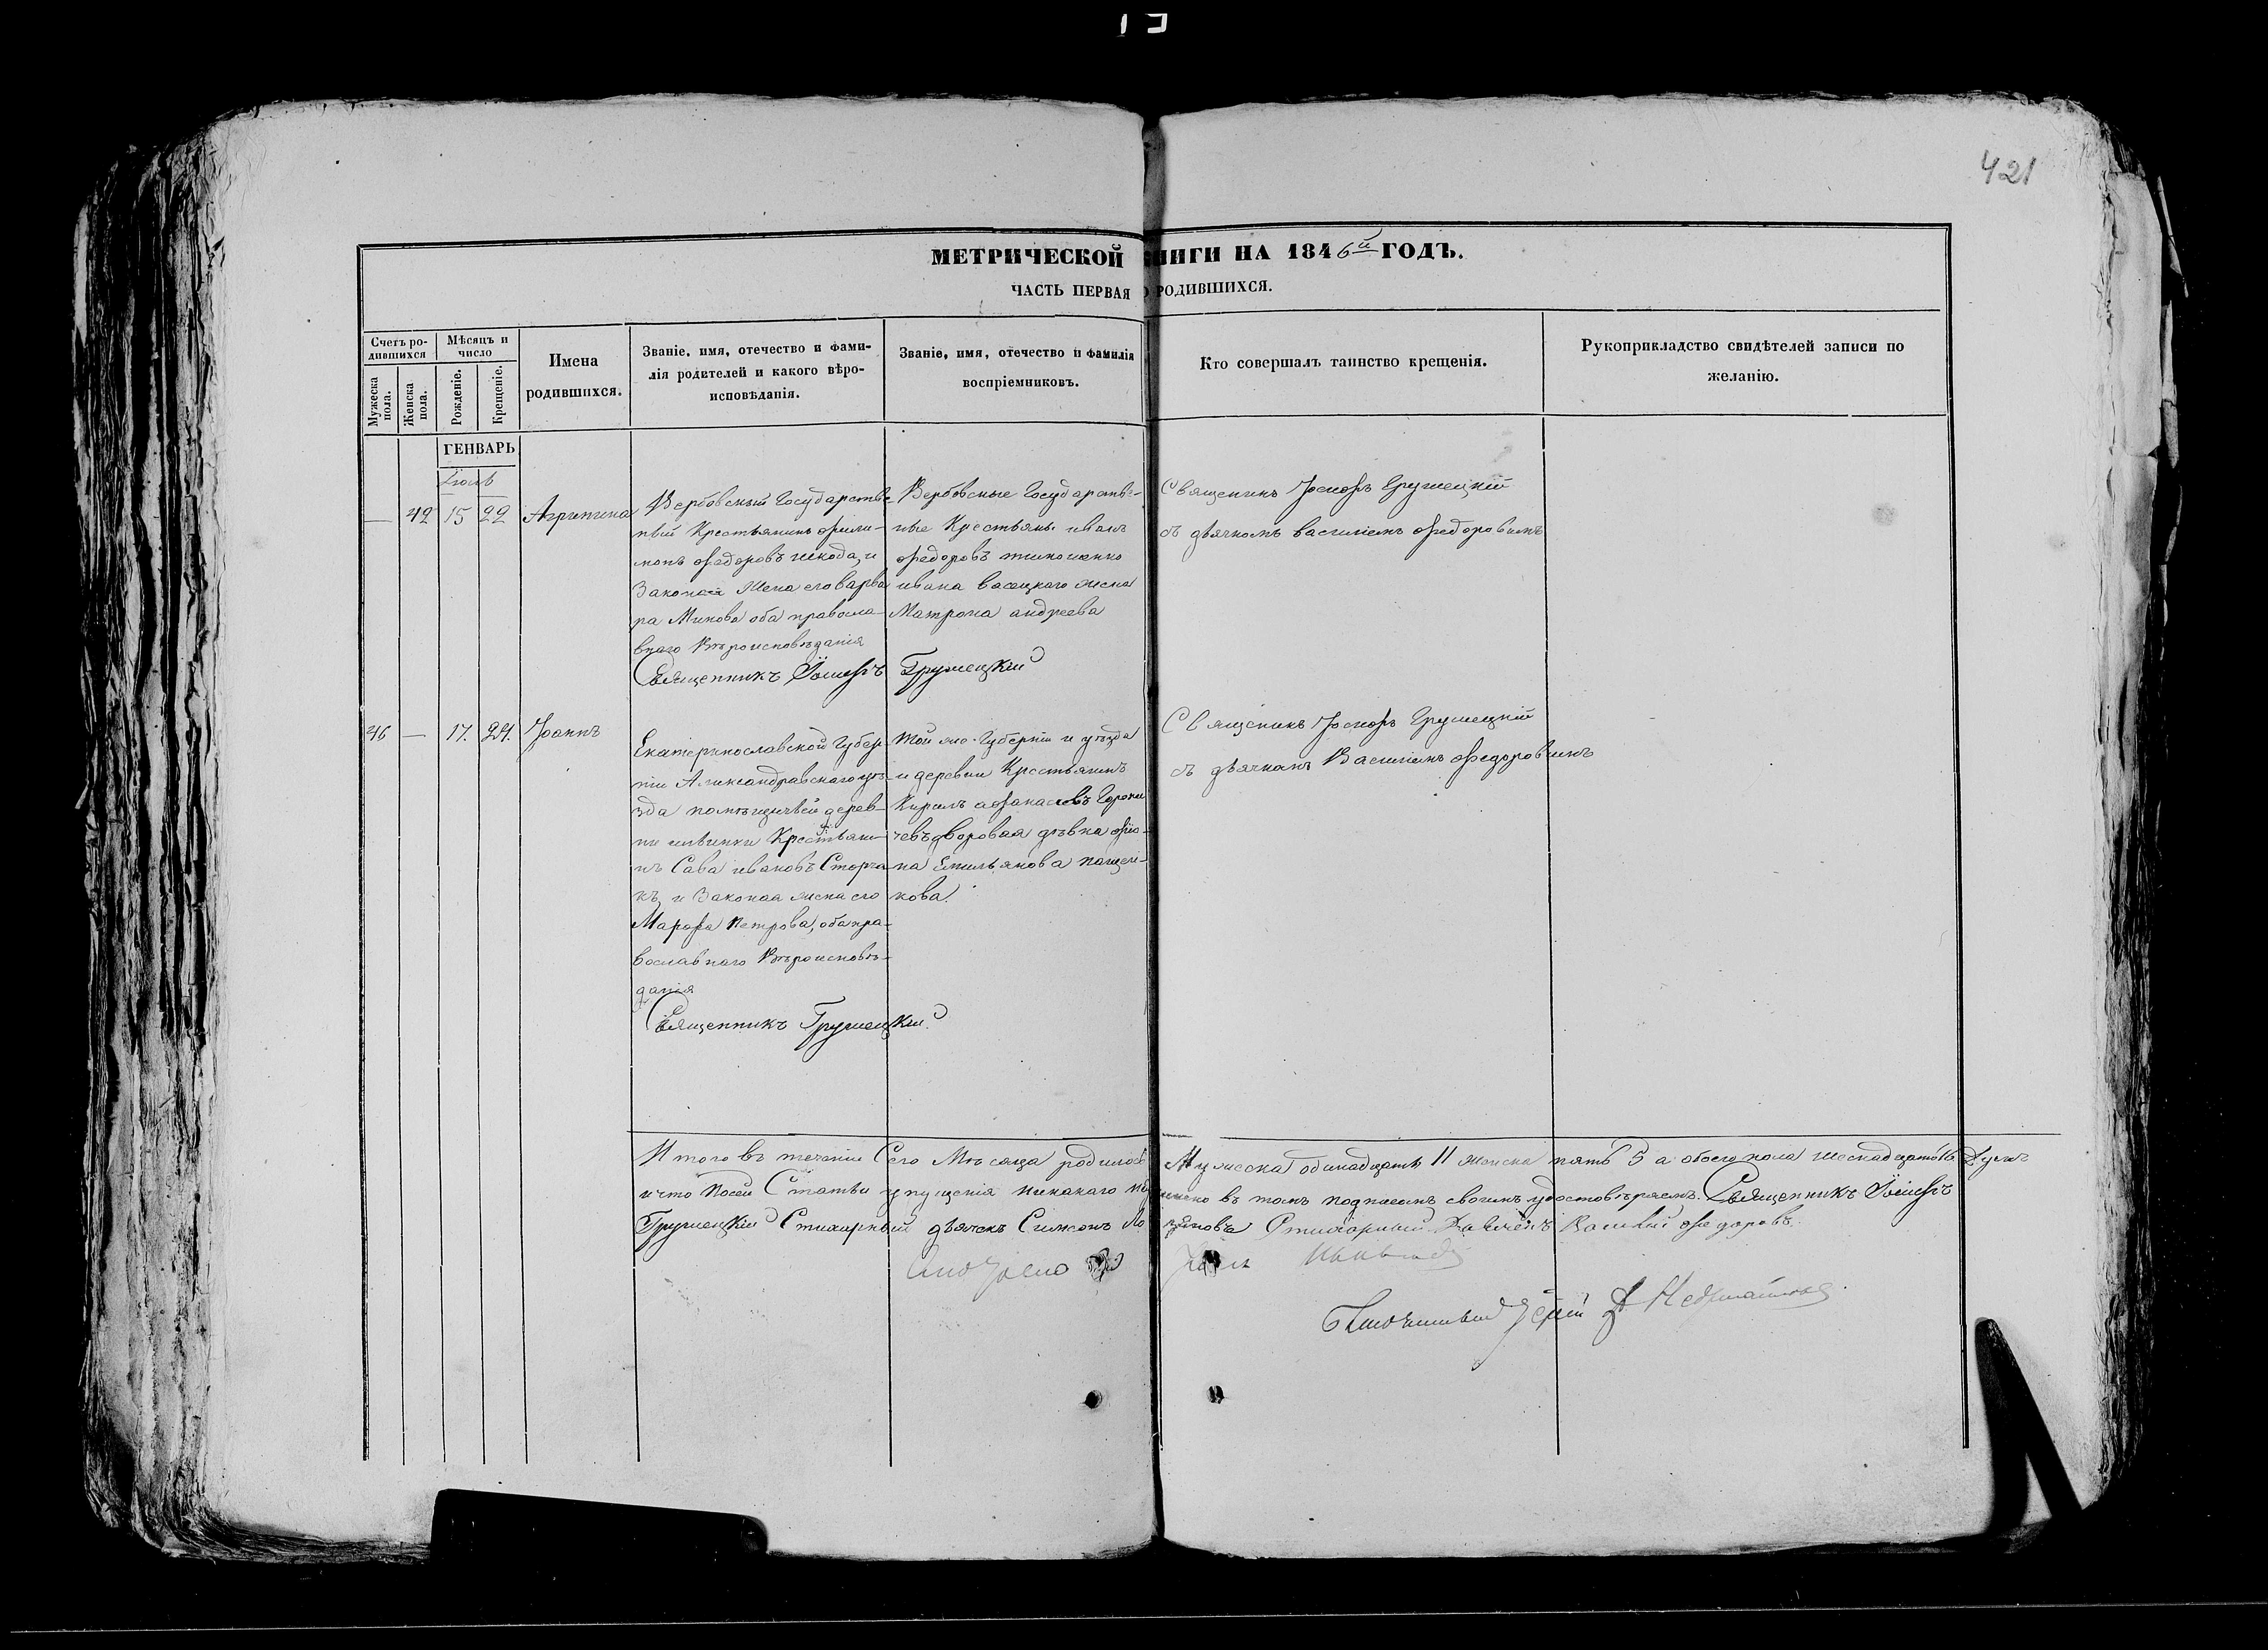 421
МЕТРИЧЕСКОЙ КНИГИ НА 1846й ГОДЪ.
ЧАСТЬ ПЕРВАЯ О РОДИВШИХСЯ.
Счетъ ро-
дившихся
Мужеска
пола.
Женска
пола.
Мѣсяцъ и
число
Рожденіе.
Крещеніе.
Имена
родившихся.
Званіе, имя, отечество и фами-
лія родителей и какого вѣро-
исповѣданія.
Званіе, имя, отечество и фамилія
воспріемниковъ.
Кто совершалъ таинство крещенія.
Рукоприкладство свидѣтелей записи по
желанію.
ГЕНВАРЬ
Іюль
— 42 15 22 Агрипина
Вербовскый Государстве
ный Крестьянинъ фили-
монъ федоровъ шкода, и
Законая Жена его варва
ра Минова оба правосла-
внаго Вѣроисповѣданія
Вербовские Государстве-
ные Крестьяны иванъ
федоровъ
ивана васецкаго жена
Матрона андреева
Священикъ Іосифъ Грушецкій
съ дьячкомъ василіемъ федоровымъ
Священникъ Іосифъ Грушецкій
46 — 17. 24. Іоаннъ
Екатеринославской Губер
ніи Александравскаго уѣ
зда помѣщичьей дерев-
ни Крестьяни-
нъ Сава ивановъ
къ, и Законая жена его
Марфа Петрова, оба пра-
вославнаго Вѣроисповѣ-
данія
той же Губерніи и уѣзда
и деревни Крестьянинъ
Кирилъ афанасіевъ
дворовая дѣвка
на Емильянова
кова.
Священикъ Іосифъ Грушецкій
съ дьячкомъ Василіемъ Федоровымъ
Священникъ Грушецкій
Итого въ теченіи Сего Мѣсяца родилось Мужеска одинадцать 11 женска пять 5 а обоего пола шеснадцать 16 Душъ
и что Посей Статьи упущенія никакаго въ томъ подписемъ своимъ удостовѣряемъ. Священникъ Іосифъ
Грушецкій Стихарный дьячекъ Симеонъ Стихарный Василій федоровъ.